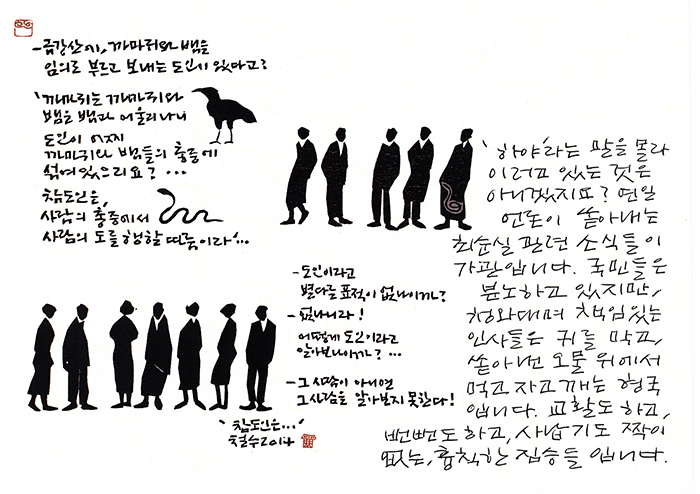 -금강산에, 까마귀와 뱀을
임의로 부르고 보내는 도인이 있다고?
'까마귀는 까마귀와
뱀은 뱀과 어울리나니
도인이 어찌
까마귀와 뱀들의 총중에
섞여있으리요? …
참도인은,
사람의 총중에서
사람의 도를 행할 따름이라'…
-도인이라고
별다를 표적이 없나이까?
-없나니라!
어떻게 도인이라고
알아보나이까? …
-그 사람이 아니면
그 사람을 알아보지 못한다!
'참도인은…'
철수 2014
'하야'라는 말을 몰라
이러고 있는 것은
아니겠지요? 연일
언론이 쏟아내는
최순실 관련 소식들이
가관입니다. 국민들은
분노하고 있지만,
청와대며 책임있는
인사들은 귀를 막고,
쏟아낸 오물 위에서
먹고 자고 깨는 형국
입니다. 교활도 하고,
뻔뻔도 하고, 사납기도 짝이
없는, 흉칙한 짐승들 입니다.